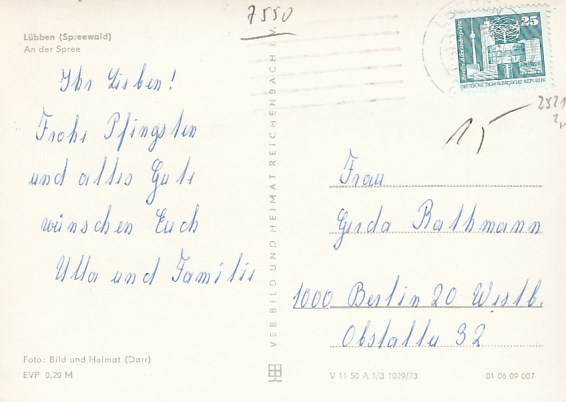 7550
Lübben (Spreewald)
An der Spree
Ihr Lieben!
Frohe Pfingsten
und alles Gute
wünschen Euch
Ulla und Familie
VEB BILD UND HEIMAT REICHENBACH i. V.
25
DEUTSCHE DEMOKRATISCHE REPUBLIK
15
Frau
Gerda Rathmann
1000 Berlin 20 Westb.
Obstallee 32
Foto: Bild und Heimat (Darr)
EVP 0,20 M
V 11 50 A 1/3 1029/73
01 06 09 007